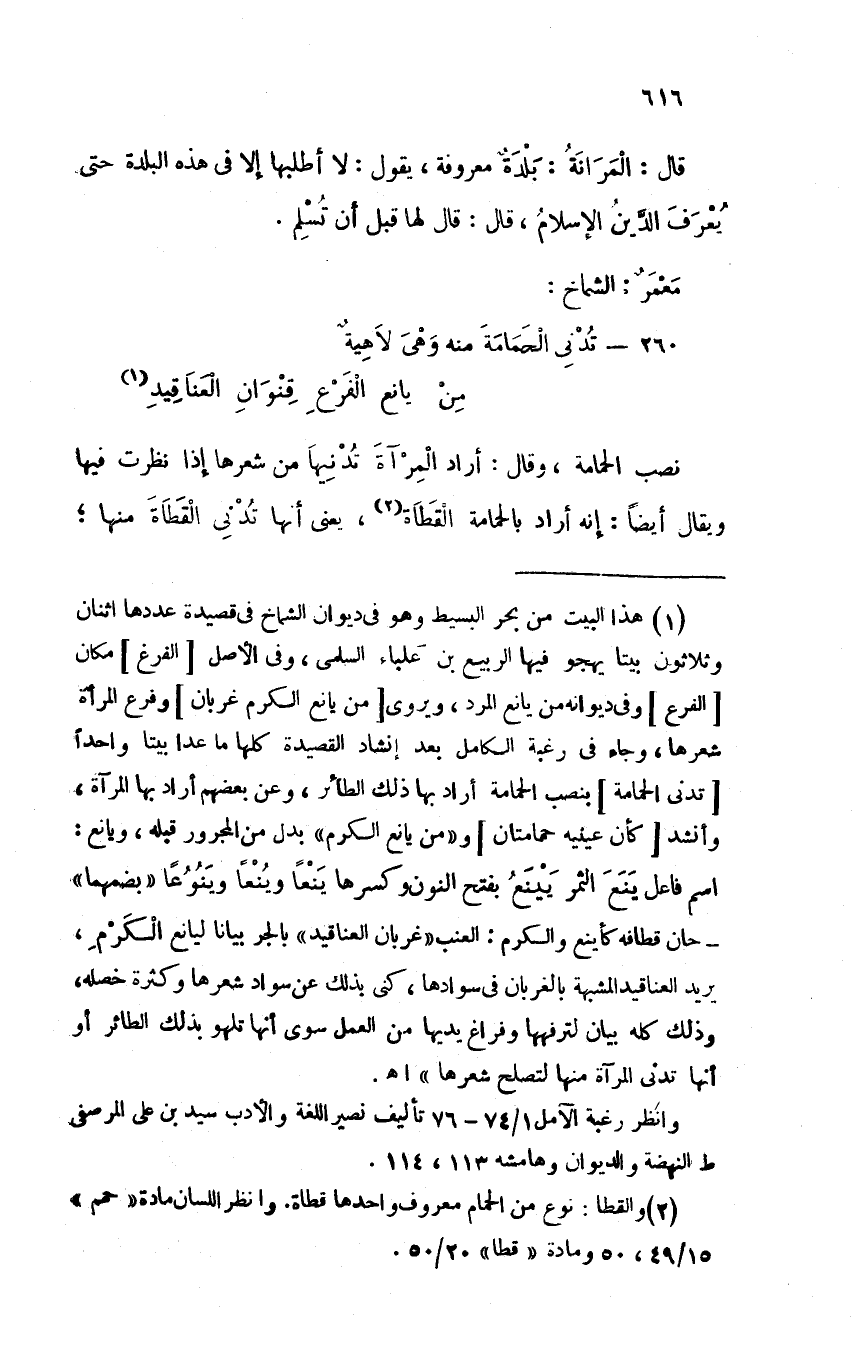 ٦١٦
قال : الْمَرَانَةُ : بَلْدَةٌ معروفة ، يقول : لا أطلبها إلا فى هذه البلدة حتى
يُعْرَفَ الدَّينُ الإسلامُ ، قال : قال لها قبل أن تُسْلِم .
مَعْمَرٌ : الشماخ :
٢٦٠ — تُدْنِى الْحَمَامَةَ منه وَهْىَ لاَهِيةٌ
مِنْ يانع الْفَرْعِ قِنْوَانِ الْعَنَاقِيدِ(١)
نصب الحمامة ، وقال : أراد الْمِرْآةَ تُدْنِيهَا من شعرها إذا نظرت فيها
ويقال أيضاً : إنه أراد بالحمامة الْقَطَاةَ(٢) ، يعنى أنها تُدْنِى الْقَطَاةَ منها ؛
(١) هذا البيت من بحر البسيط وهو فى ديوان الشماخ فى قصيدة عددها اثنان
وثلاثون بيتا يهجو فيها الربيع بن علباء السلمى ، وفى الأصل [ الفرغ ] مكان
[ الفرع ] وفى ديوانه من يانع المرد ، ويروى [ من يانع الكرم غربان ] وفرع المرأة
شعرها ، وجاء فى رغبة الكامل بعد إنشاد القصيدة كلها ما عدا بيتا واحداً
[ تدنى الحمامة ] بنصب الحمامة أراد بها ذلك الطائر ، وعن بعضهم أراد بها المرآة ،
وأنشد [ كأن عينيه حمامتان ] و«من يانع الكرم» بدل من المجرور قبله ، ويانع :
اسم فاعل يَنَعَ الثمر يَيْنَعُ بفتح النون وكسرها يَنْعًا ويُنْعًا ويَنُوعًا «بضمهما»
ـ حان قطافه كأينع والكرم : العنب «غربان العناقيد» بالجر بيانا ليانع الْكَرْمِ ،
يريد العناقيد المشبهة بالغربان فى سوادها ، كنى بذلك عن سواد شعرها وكثرة خصله ،
وذلك كله بيان لترفهها وفراغ يديها من العمل سوى أنها تلهو بذلك الطائر أو
أنها تدنى المرآة منها لتصلح شعرها » ا ه .
وانظر رغبة الآمل ٧٤/١ – ٧٦ تأليف نصير اللغة والأدب سيد بن على المرصفى
ط النهضة والديوان وهامشه ١١٣ ، ١١٤ .
(٢) والقطا : نوع من الحمام معروف واحدها قطاة. وانظر اللسان مادة « حمم »
٤٩/١٥ ، ٥٠ ومادة « قطا» ٥٠/٢٠ .